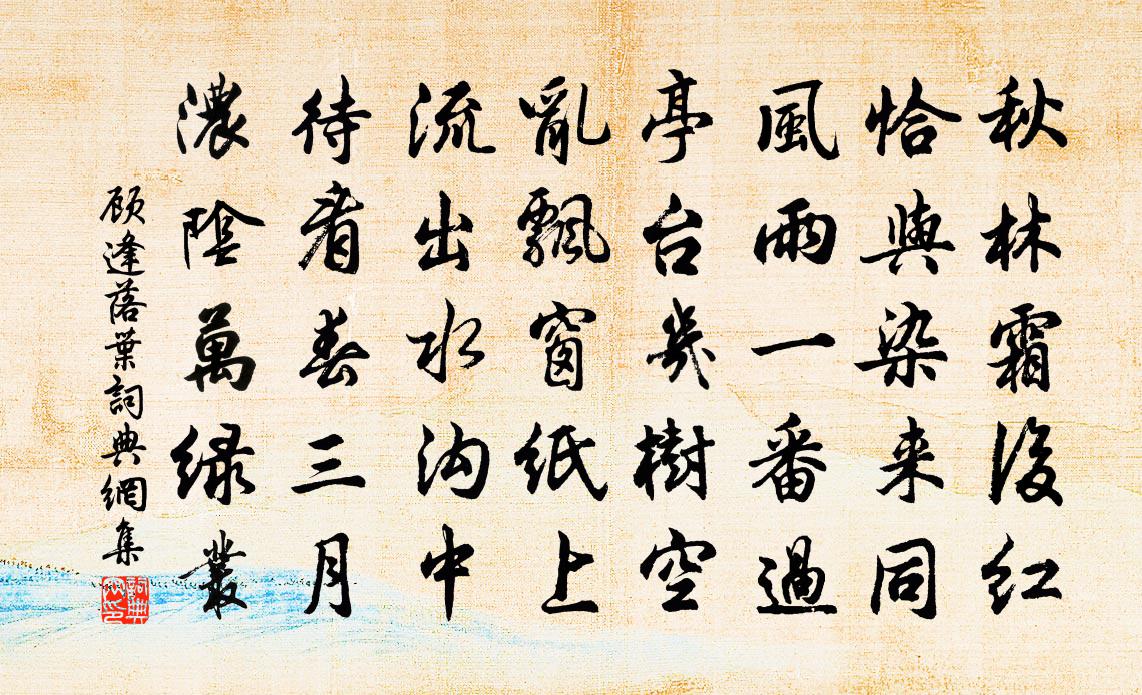 秋林霜後红
恰與染来同
風雨一番過
亭台幾樹空
亂飄窗紙上
流出水沟中
待看春三月
濃陰萬绿叢
顾逢落葉詞典網集